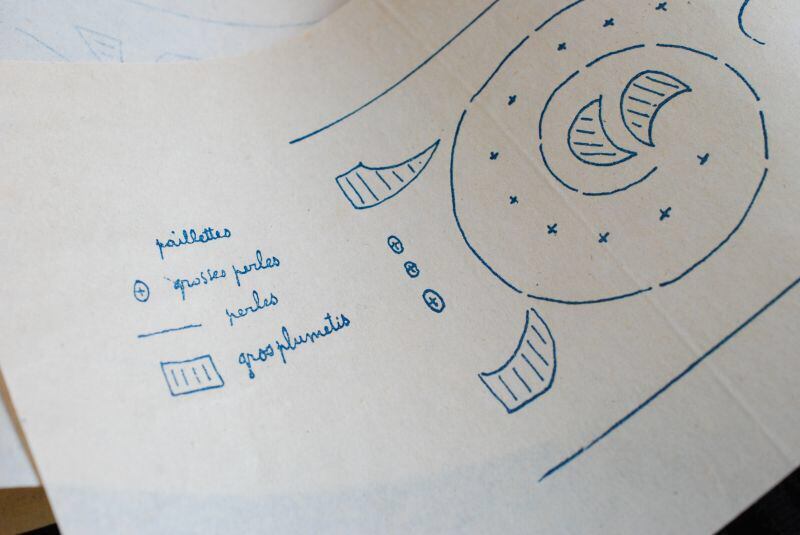 paillettes
grosses perles
perles
gros plumetis